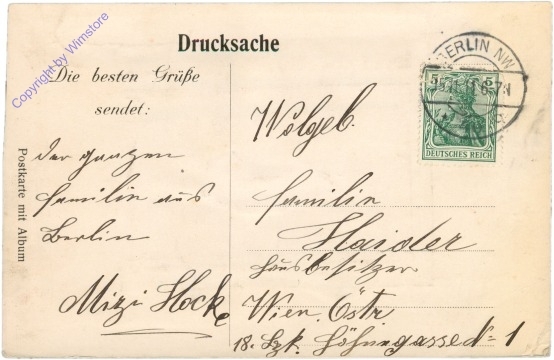 Drucksache
Die besten Grüße
sendet:
der ganzen
Familie aus
Berlin
Mizi Hocke
Postkarte mit Album
Wolgeb.
Familie
Haider
Hausbesitzer
Wien. Östr
18. Bzk. Höhnegasse No 1
BERLIN NW
5 5
DEUTSCHES REICH
Copyright by Wimstore